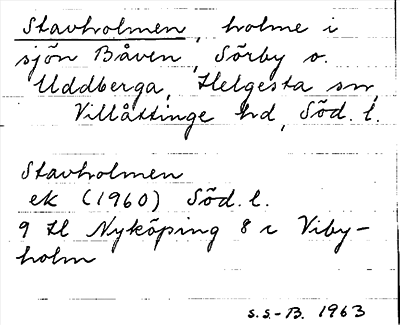 Stavholmen, holme i
sjön Båven, Sörby o.
Uddberga, Helgesta sn,
Villåttinge hd, Söd. l.
Stavholmen
ek (1960) Söd. l.
9 H Nyköping 8 c Viby-
holm
S.S.-B. 1963